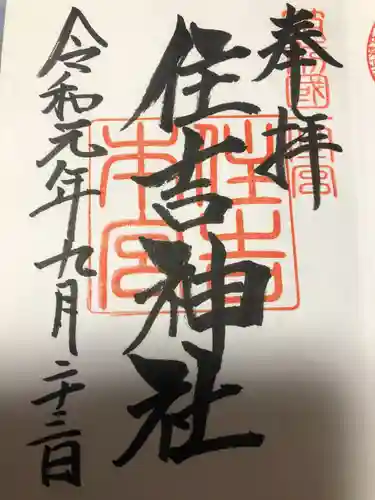 奉拝
住吉神社
令和元年九月二十三日
住吉本宮